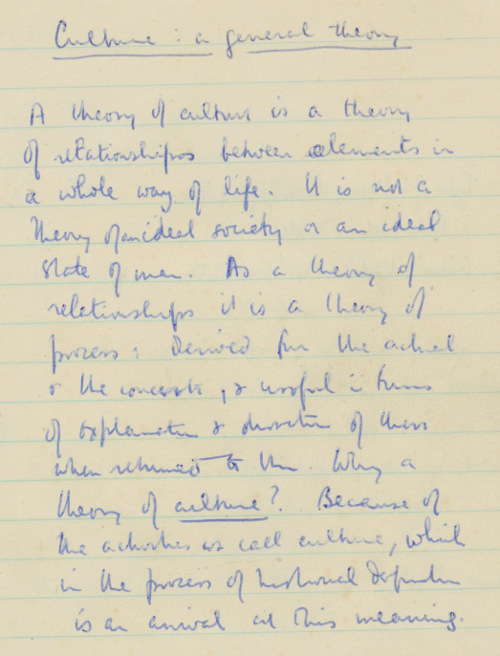 Culture : a general theory
A theory of culture is a theory
of relationships between elements in
a whole way of life. It is not a
theory of an ideal society or an ideal
state of men. As a theory of
relationships it is a theory of
process : derived from the actual
& the concrete, & useful in terms
of explanation & direction of these
when returned to them. Why a
theory of culture? Because of
the activities we call culture, which
in the process of historical definition
is an arrival at this meaning.